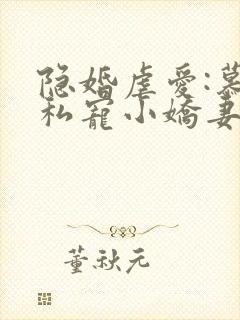 隐婚虐爱:慕
私宠小娇妻
董秋元